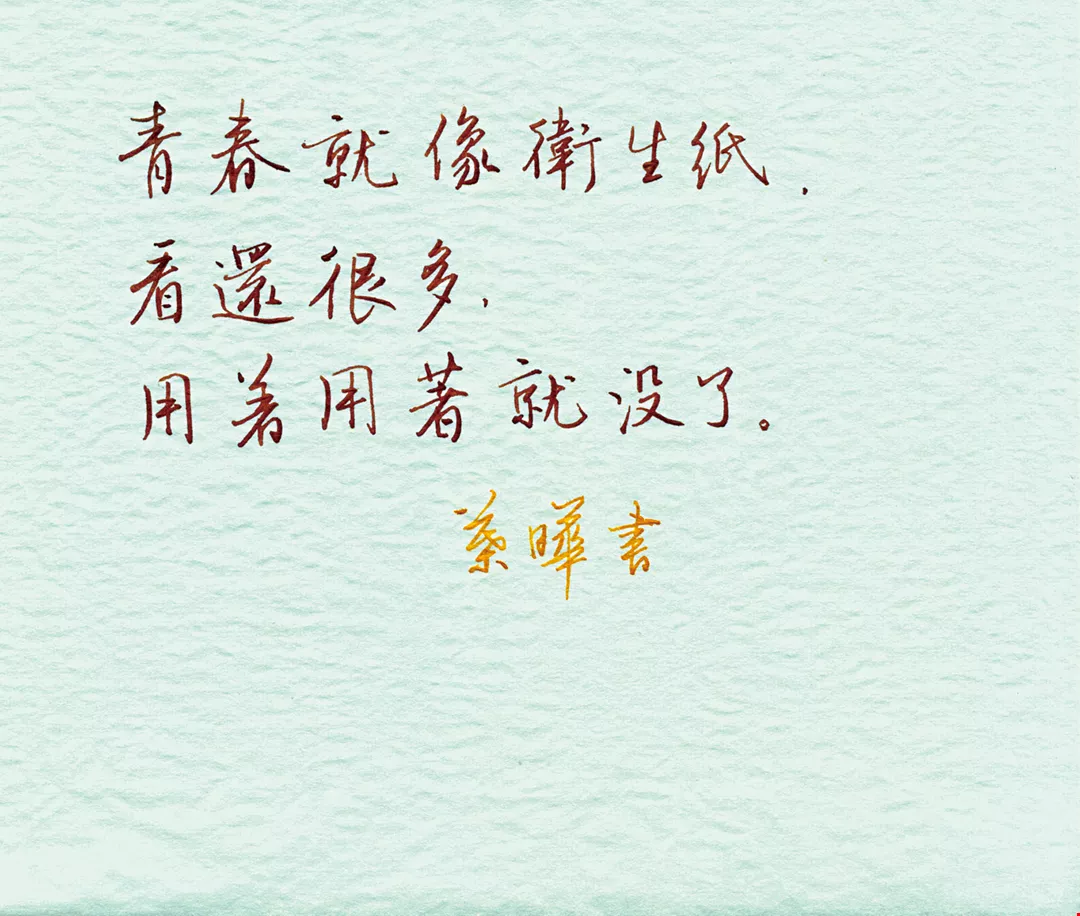 青春就像衛生紙，
看還很多，
用着用著就没了。
葉曄書